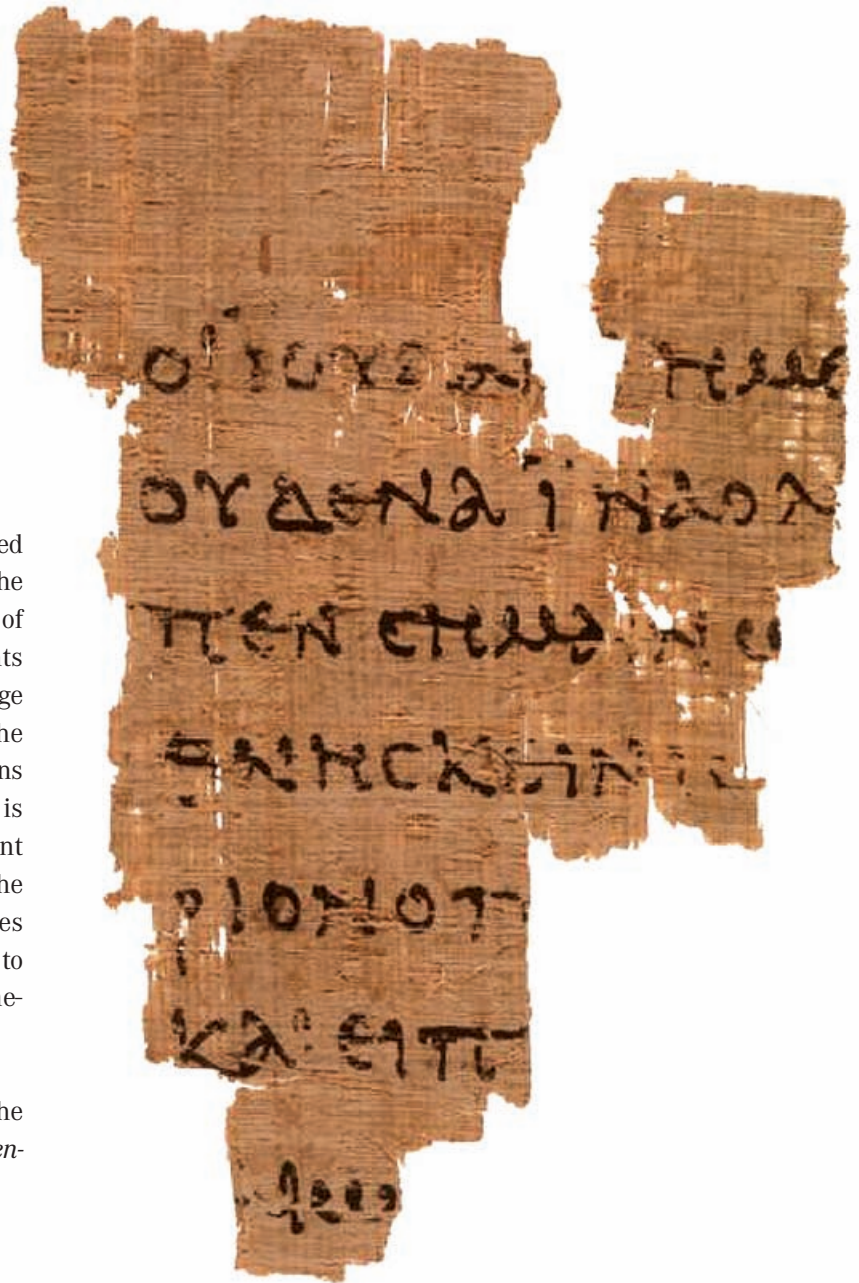 ed
he
of
ts
ge
he
ns
is
nt
he
es
to
ne-
he
en-
ΟΙ ΙΟΥΔΑΙ ΗΜΕ
ΟΥΔΕΝΑ ΪΝΑ Ο Λ
ΠΕΝ ϹΗΜΑΙΝω
ΘΝΗϹΚΕΙΝ ΙϹ
ΡΙΟΝ Ο Π
ΚΑΙ ΕΙΠ